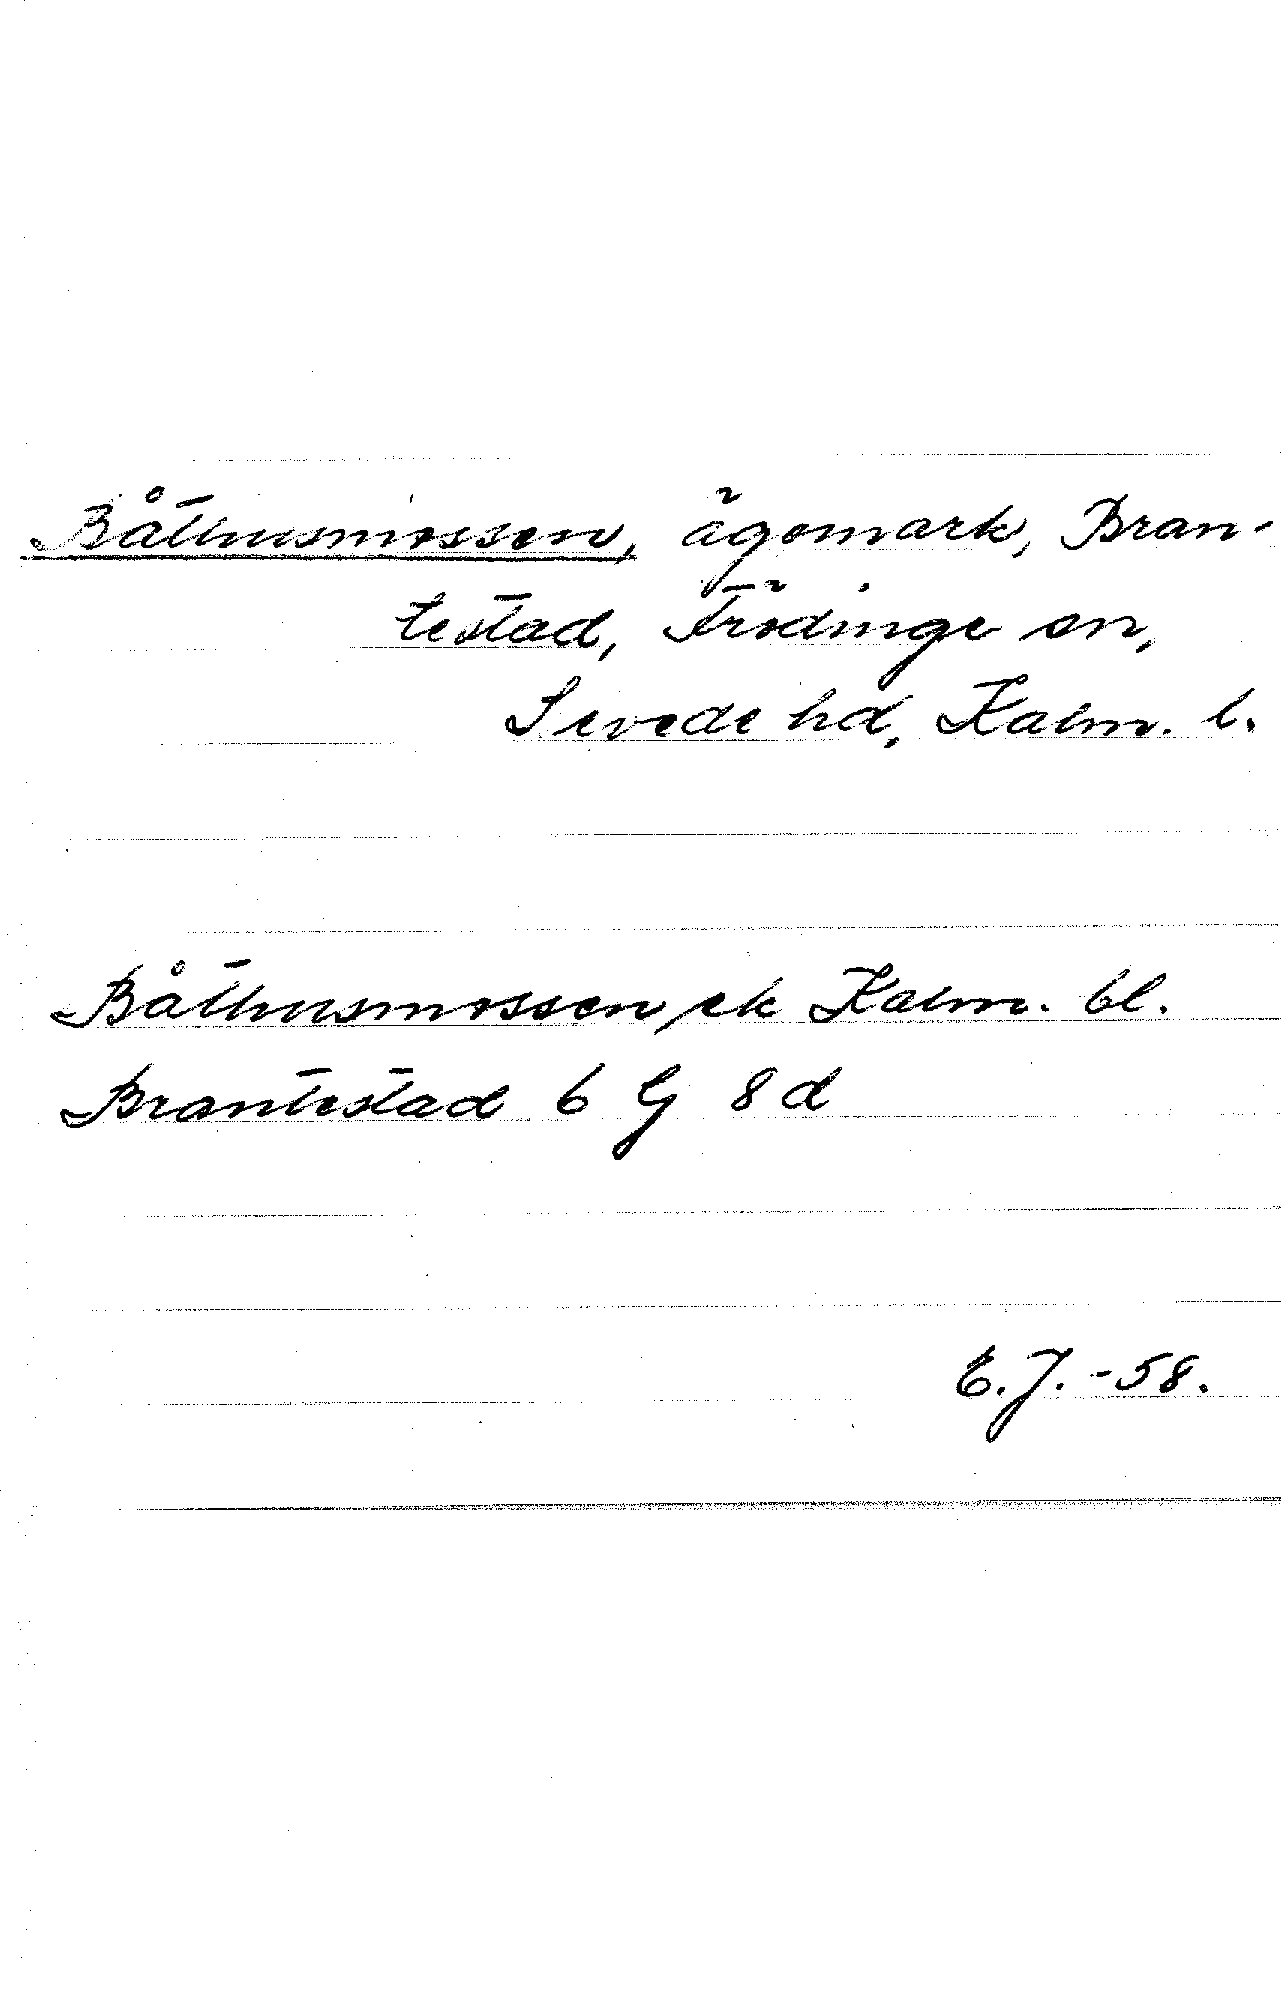 Båthusmossen, ägomark, Bran-
testad, Frödinge sn,
Sevede hd, Kalm. l.
Båthusmossen, ek Kalm. bl.
Brantestad 6 G 8 d
E.J. -58.